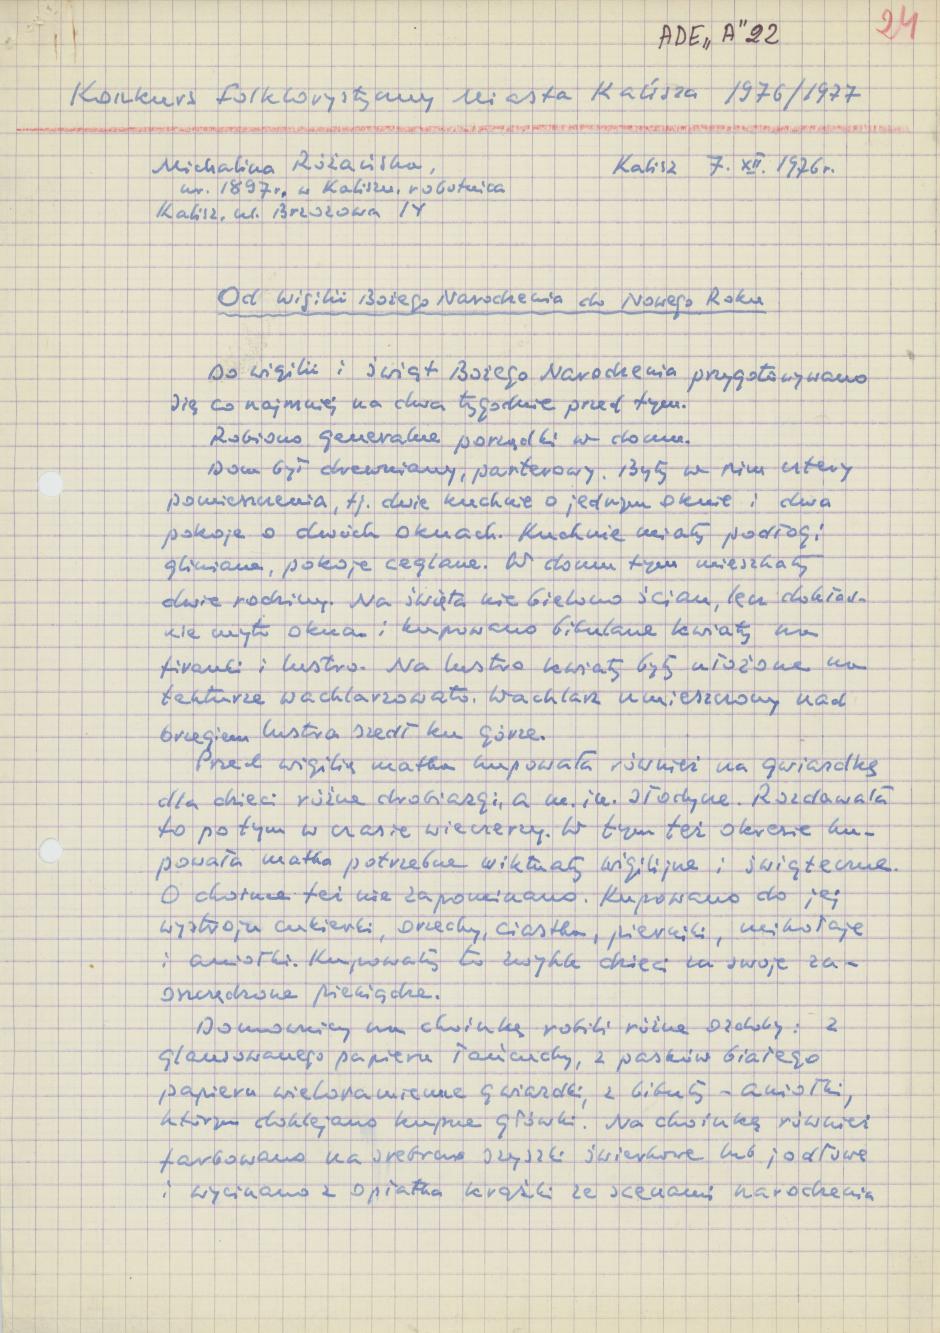 ADE„A"22
24
Konkurs folklorystyczny Miasta Kalisza 1976/1977
Michalina Różańska,
Kalisz 7. XII. 1976r.
ur. 1897r. w Kaliszu, robotnica
Kalisz, ul. Brzozowa 14
Od wigilii Bożego Narodzenia do Nowego Roku
Do wigilii i świąt Bożego Narodzenia przygotowywano
się co najmniej na dwa tygodnie przed tym.
Robiono generalne porządki w domu.
Dom był drewniany, parterowy. Były w nim cztery
pomieszczenia, tj. dwie kuchnie o jednym oknie i dwa
pokoje o dwóch oknach. Kuchnie miały podłogi
gliniane, pokoje ceglane. W domu tym mieszkały
dwie rodziny. Na święta nie bielono ścian, lecz dokład-
nie myto okna i kupowano bibulane kwiaty na
firanki i lustro. Na lustro kwiaty były ułożone na
tekturze wachlarzowato. Wachlarz umieszczony nad
brzegiem lustra szedł ku górze.
Przed wigilią matka kupowała również na gwiazdkę
dla dzieci różne drobiazgi, a m.in. słodycze. Rozdawała
to po tym w czasie wieczerzy. W tym też okresie ku-
powała matka potrzebne wiktuały wigilijne i świąteczne.
O choince też nie zapominano. Kupowano do jej
wystroju cukierki, orzechy, ciastka, pierniki, mikołaje
i aniołki. Kupowały to zwykle dzieci za swoje za-
oszczędzone pieniądze.
Domownicy na choinkę robili różne ozdoby: z
glansowanego papieru łańcuchy, z pasków białego
papieru wieloramienne gwiazdki, z bibuły - aniołki,
którym doklejano kupne główki. Na choinkę również
farbowano na srebrno szyszki świerkowe lub jodłowe
i wycinano z opłatka krążki ze scenami narodzenia